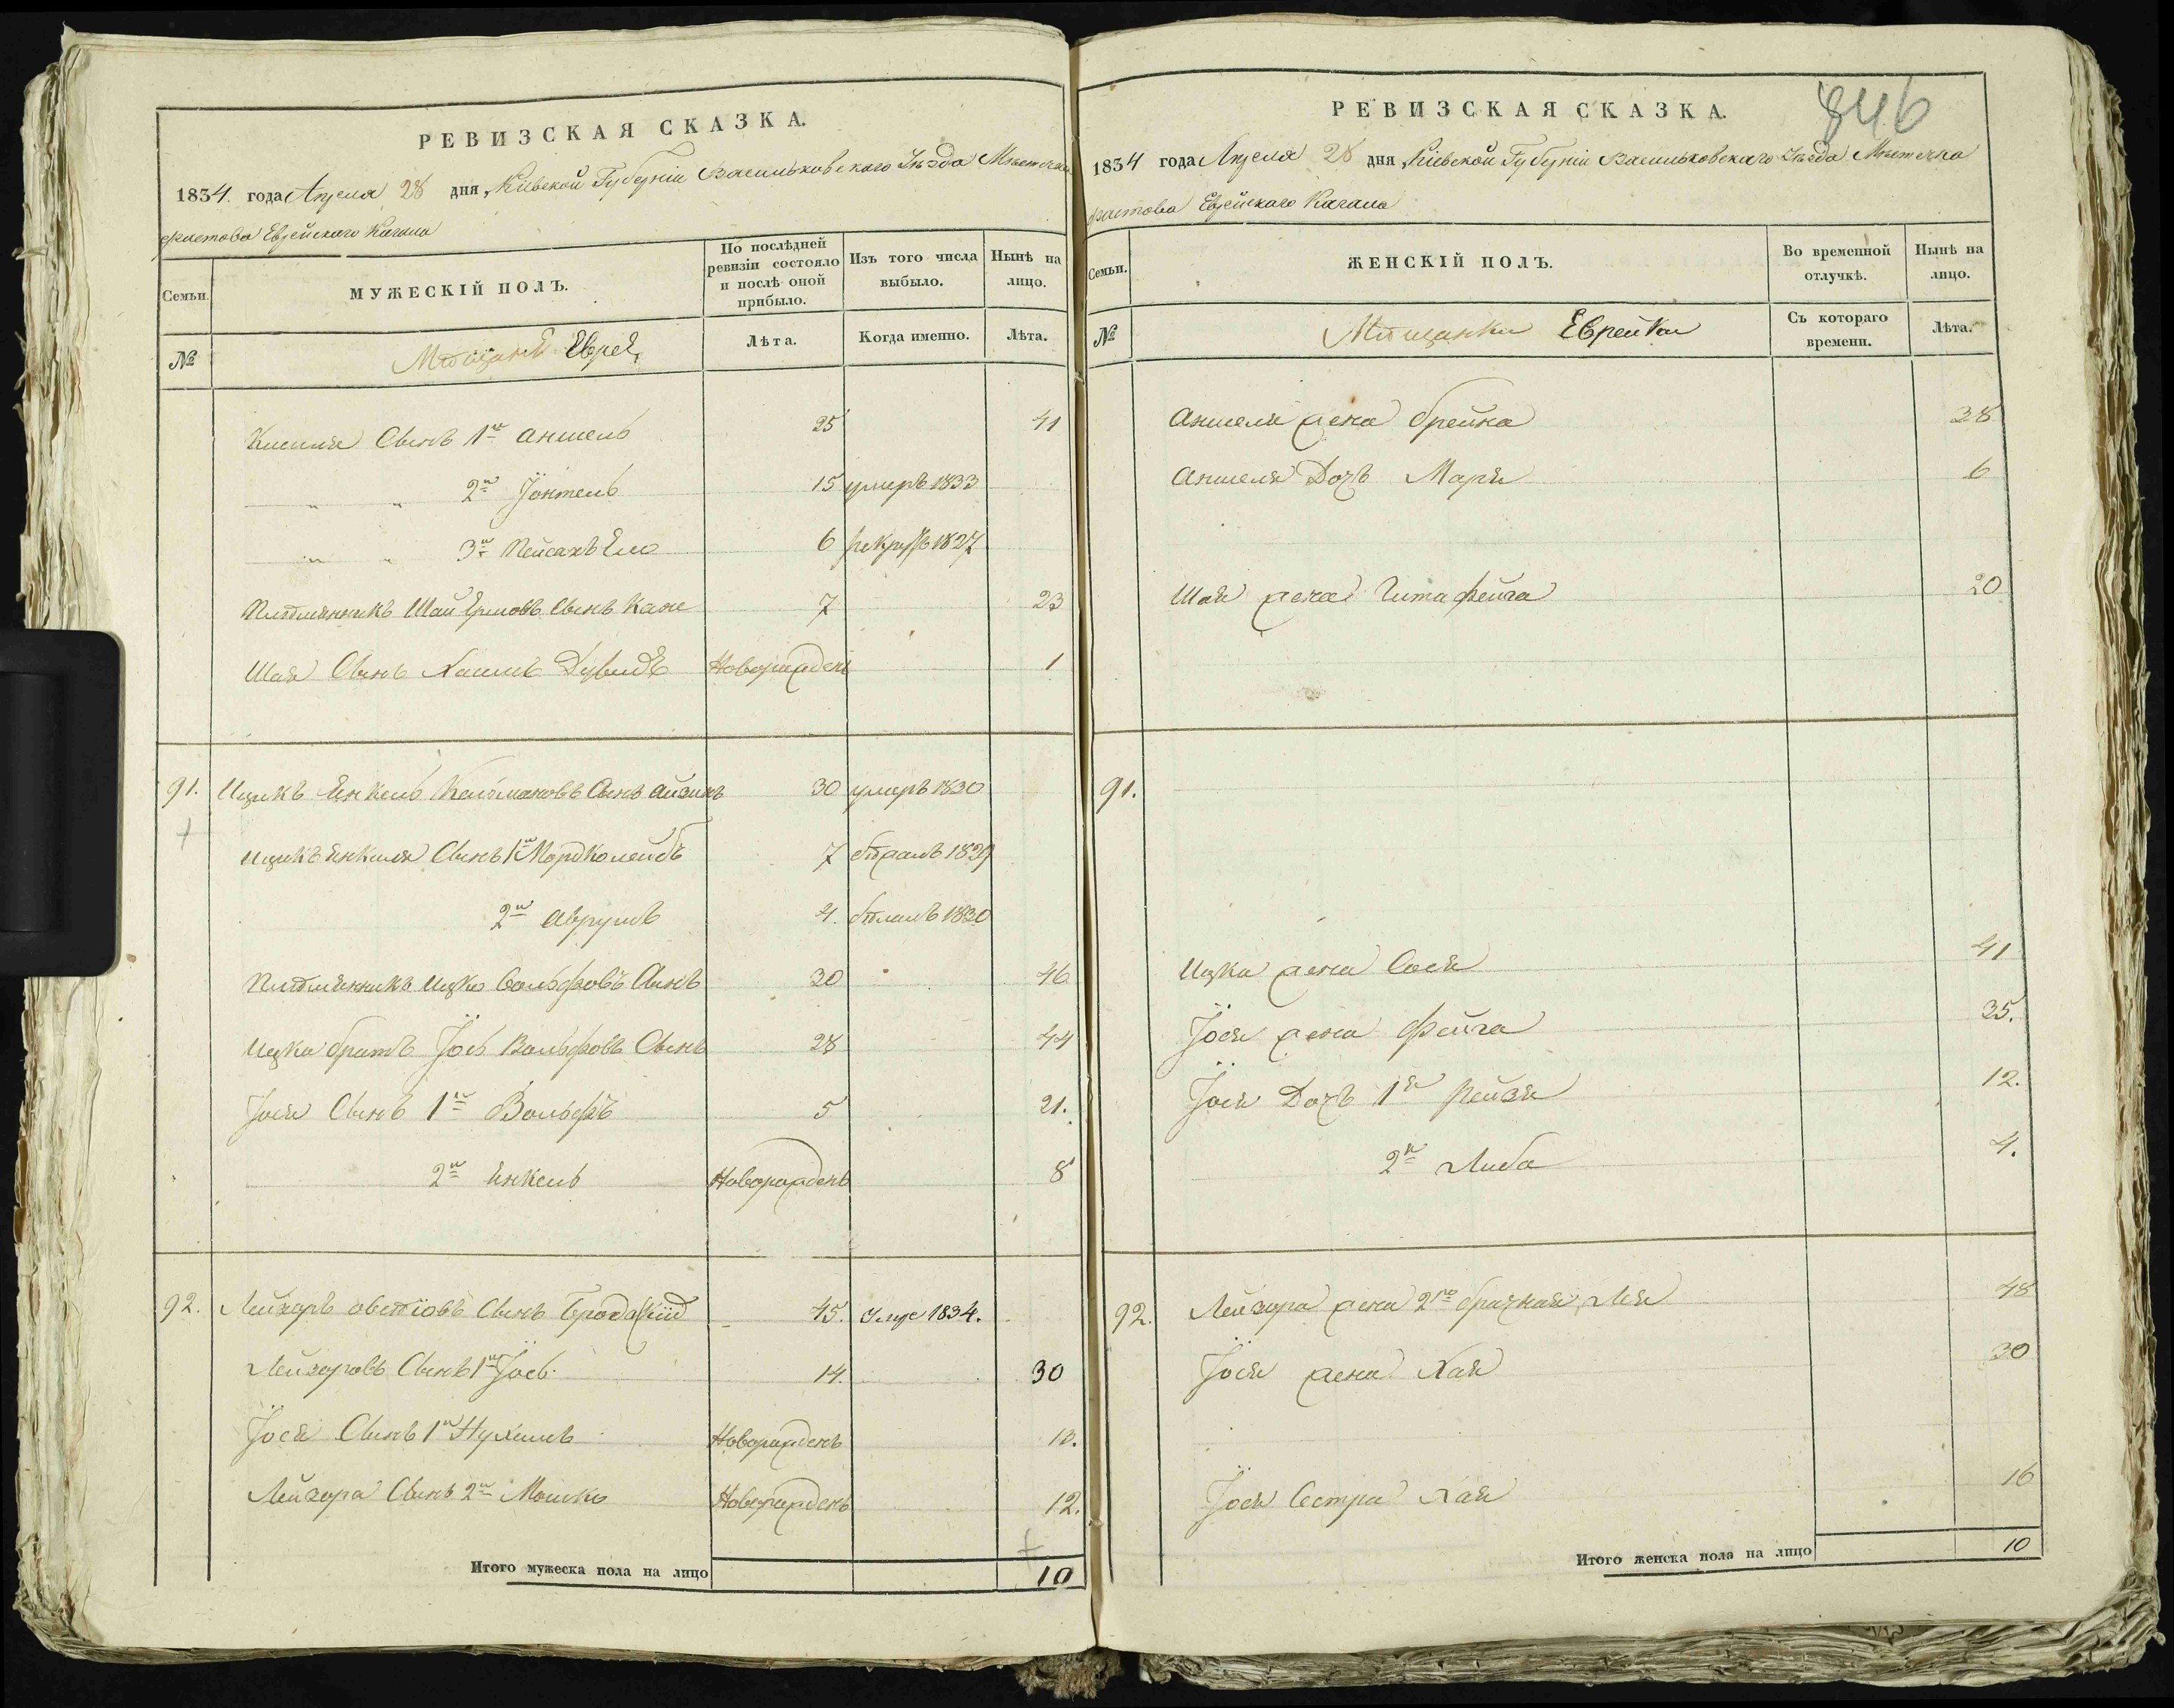 РЕВИЗСКАЯ СКАЗКА.
1834. года Апреля 28 дня, Кіевской Губерніи Васильковского Уѣзда Мѣстечка
Фастова Еврейского Кагала
Семьи.
МУЖЕСКІЙ ПОЛЪ.
По послѣдней ревизіи состояло и послѣ оной прибыло.
Изъ того числа выбыло.
Нынѣ на лицо.
№
Мѣщанѣ Евреѣ
Лѣта.
Когда именно.
Лѣта.
Сынъ 1й Аншель 25 41
2й Іонтель 15 умеръ 1833
3й Пейсахъ 6 рекрутъ 1827
Племѣнникъ Шая Сынъ 7 23
Шая Сынъ Дувидъ Новорожденъ 1
91. Ицикъ Енкель Кельмановъ Сынъ Айзикъ 30 умеръ 1830
Ицикъ Енкеля Сынъ 1й Мордколейбъ 7 1829
2й Аврумъ 4. бѣжалъ 1830
Племѣнникъ Ицко Вольфовъ Сынъ 30 46
Ицка братъ Іось Вольфовъ Сынъ 28 44
Іося Сынъ 1й Вольфъ 5 21.
2й Енкель Новорожденъ 8
92. Лейзоръ Сынъ 45. Умре 1834.
Лейзоровъ Сынъ 1й Іось 14. 30
Іося Сынъ 1й Нухимъ Новорожденъ 10.
Лейзора Сынъ 2й Мошко Новорожденъ 12.
Итого мужеска пола на лицо 10
846
РЕВИЗСКАЯ СКАЗКА.
1834 года Апреля 28 дня, Кіевской Губерніи Васильковскаго Уѣзда Мѣстечка
Фастова Еврейскаго Кагала
Семьи.
ЖЕНСКІЙ ПОЛЪ.
Во временной отлучкѣ.
Нынѣ на лицо.
№
Мѣщанки Еврейки
Съ котораго времени.
Лѣта.
Аншеля жена Брейна 38
Аншеля Дочъ Маря 6
Шая жена Гита Фейга 20
91.
Ицка жена Сося 41
Іося жена Фейга 35.
Іося Дочъ 1я Рейзя 12.
2я Либа 4.
92. Лейзора жена 2го брачная Лея 48
Іося жена Хая 30
Іося Сестра Хая 16
Итого женска пола на лицо 10